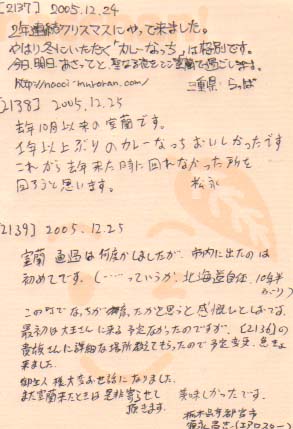 [2137] 2005.12.24
2年連続クリスマスにやって来ました。
やはり冬にいただく「カレーなっち」は格別です。
今日、明日、あさってと、聖なる夜をここ室蘭で過ごします。
http://nacci-muroran.com/ 三重県 らっぱ
[2138] 2005.12.25
去年10月以来の室蘭です。
1年以上ぶりのカレーなっちおいしかったです
これから去年来た時に回れなかった所を
回ろうと思います。 松永
[2139] 2005.12.25
室蘭 通過は何度かしましたが、市内に出たのは
初めてです。(……っていうか、北海道自体、10年半
ぶり)
この町で なっちが育ったかと思うと感慨ひとしおです。
最初は大王さんに来る予定なかったのですが、[2136]の
貴族さんに詳細な場所教えてもらったので予定変更
来ました。
御主人様 大変お世話になりました。
また室蘭来たときは是非寄らせて
頂きます。 美味しかったです。
栃木県宇都宮市
(エアロスター)